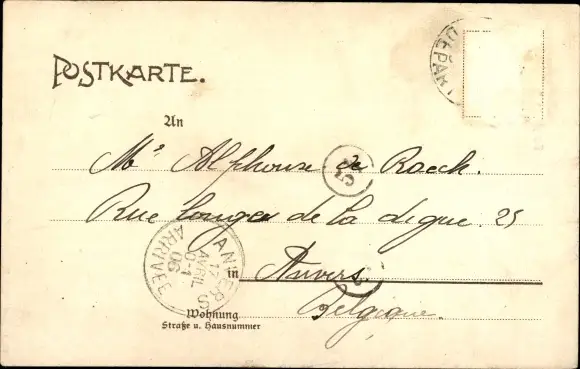 DEPART
POSTKARTE.
An
Mr Alphonse de Roeck.
Rue longue de la digue. 25
in Anvers.
Belgique.
Wohnung
Straße u. Hausnummer
ANVERS
AVRIL
0-1
06
ARRIVÉE